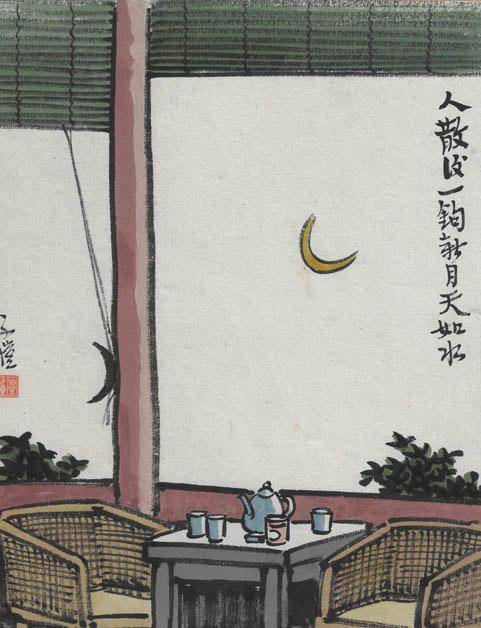 人散后一钩新月天如水
子愷